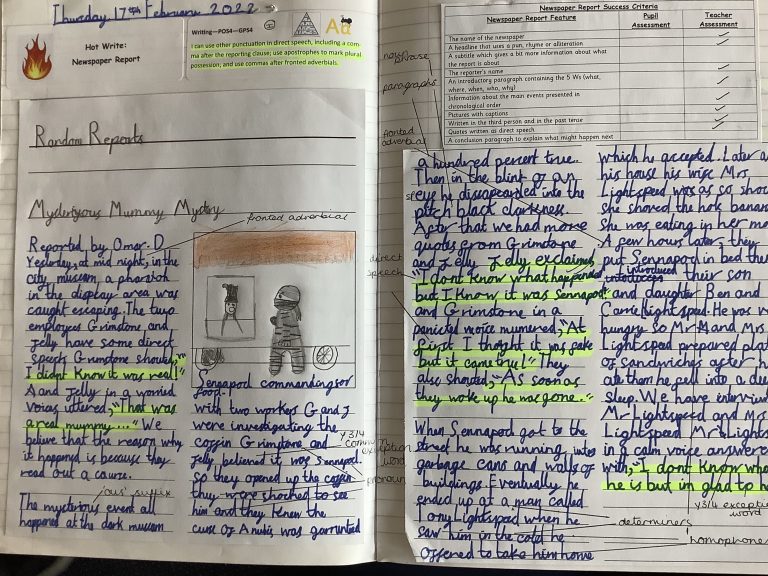 Thursday 17th February 2022
Hot Write:
Newspaper Report
Writing—POS4—GPS4
I can use other punctuation in direct speech, including a com-
ma after the reporting clause; use apostrophes to mark plural
possession; and use commas after fronted adverbials.
Random Reports
Mysterious Mummy Mystery
fronted adverbial
Reported by Omar. D
Yesterday, at mid night, in the
city museum, a pharaoh
in the display area was
caught escaping. The two
employees Grimstone and
Jelly have some direct
speech Grimstone shouted,
I didnt know it was real!"
And Jelly in a worried
voice uttered, "That was
a real mummy..." We
believe that the reason why
it happend is because they
read out a curse.
'ous' suffix
The mysterious event all
happened at the dark museum
Sennapod commanding for
food.
with two workers G and J
were investigating the
coffin Grimstone and
Jelly believed it was Sennapod.
So they opened up the coffin
they were shocked to see
him and they knew the
curse of Anubis was
y3/4
common
exception
word
pronoun
noun phrase
paragraphs
fronted
adverbial
direct
speech
Newspaper Report Success Criteria
Newspaper Report Feature
Pupil
Assessment
Teacher
Assessment
The name of the newspaper
A headline that uses a pun, rhyme or alliteration
A subtitle which gives a bit more information about what
the report is about
The reporter's name
An introductory paragraph containing the 5 Ws (what,
where, when, who, why)
Information about the main events presented in
chronological order
Pictures with captions
Written in the third person and in the past tense
Quotes written as direct speech
A conclusion paragraph to explain what might happen next
a hundred percent true.
Then in the blink of an
eye he disappearded into the
pitch black darkness.
After that we had more
quotes from Grimstone
and Jelly. Jelly exclaimed,
"I dont know what happened
but I know it was Sennapod"
and Grimstone in a
panicked voice mumered, "At
first I thoght it was fake
but it came true!" They
also shouted, "As soon as
they woke up he was gone.."
When Sennapod got to the
street he was running into
garbage cans and walls of
buildings. Eventually he
ended up at a man called
Tony Lightspeed when he
saw him in the cold he
offered to take him home
which he accepted. Later a
his house his wife Mrs
Lightspeed was so shoc
she shoved the hole banana
She was eating in her mo
A few hours later, they
put Sennapod in bed the
introduced their son
and daughter Ben and
Camelightspeed. He was
hungry so Mr and Mrs
Lightspeed prepared plat
of sandwiches after he
ate them he fell into a dee
sleep. We have interview
Mr Lightspeed and Mrs
Lightspeed Mrs Lights
in a calm voice answere
with, "I dont know who
he is but im glad to h
y3/4 exception
word
determiners
homophones